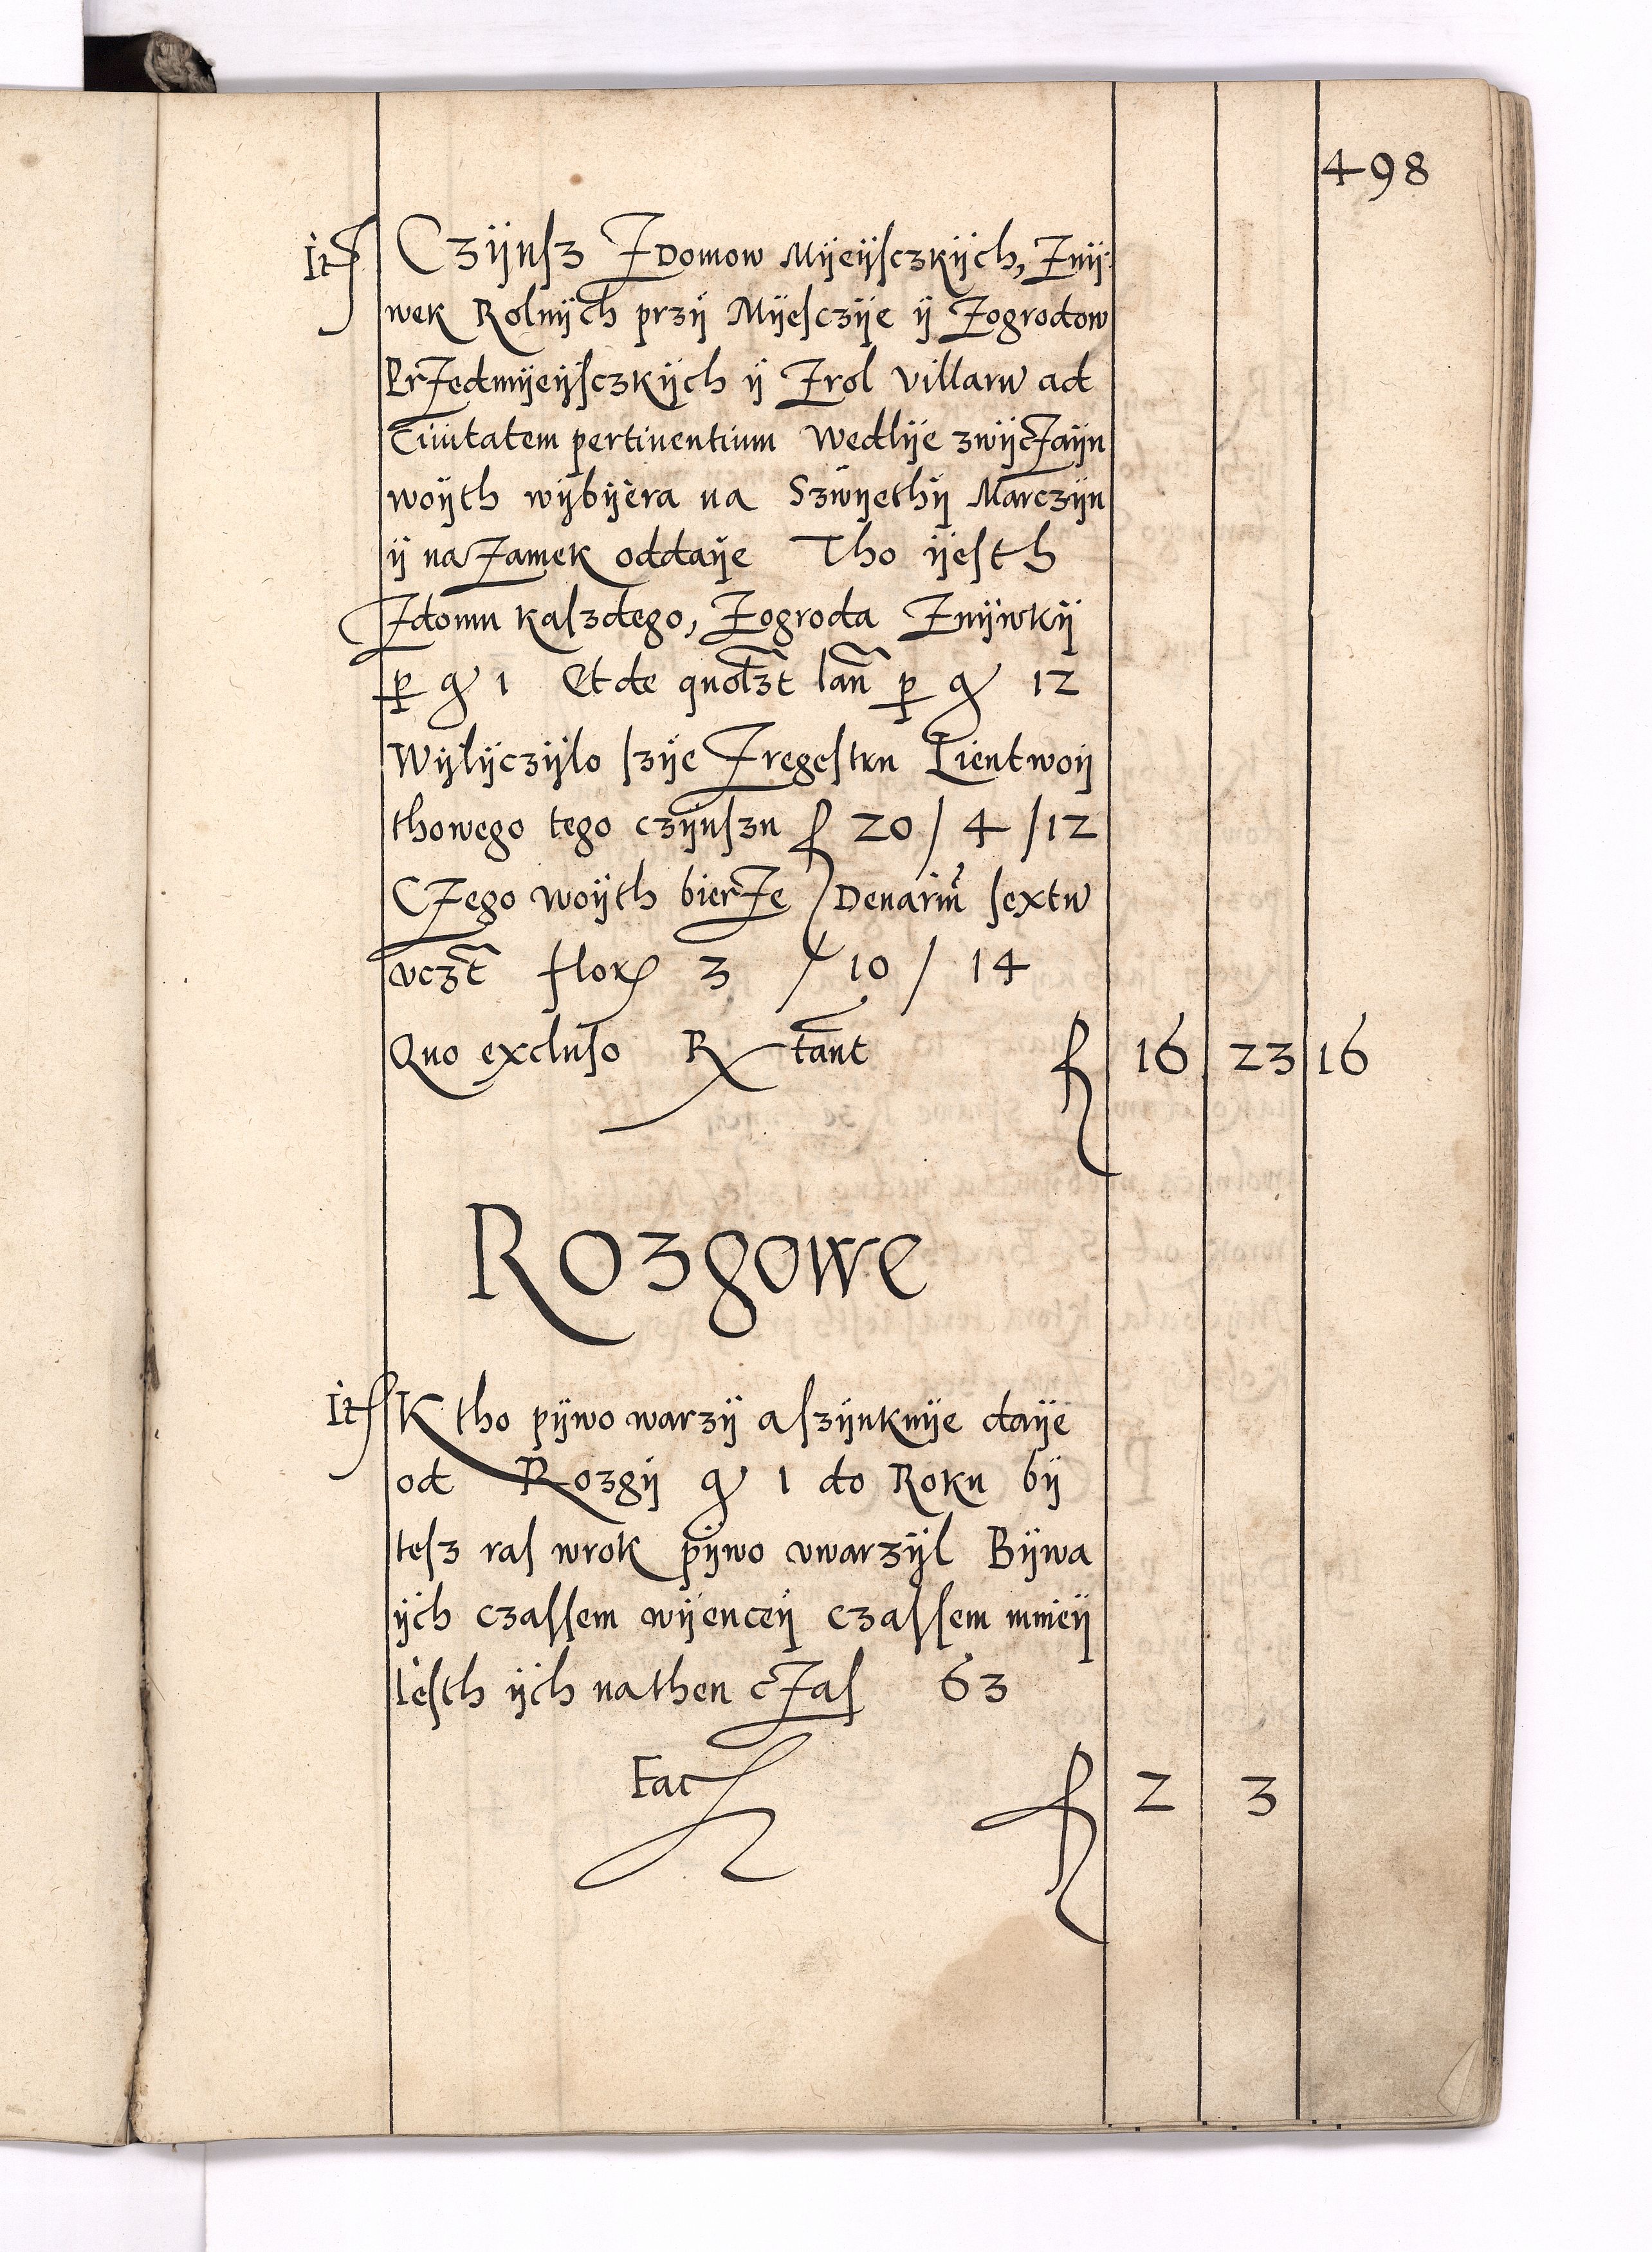 498
It Czÿnsz Zdomow Mÿeÿsczkÿch, Znÿ-
wek Rolnÿch przÿ Mÿesczÿe ÿ Zogrodow
Przedmÿeÿsczkÿch ÿ Zrol villaru ad
Ciuitatem pertinentium Wedlÿe zwÿczaÿu
woÿth wÿbÿera na Szwÿethÿ Marczÿn
ÿ na Zamek oddaÿe Tho ÿesth
Zdomu kaszdego, Zogroda Znÿwkÿ
p g 1 Et de quolzt lan̄ p g 12
Wÿlÿczÿlo szÿe Zregestru Lientwoÿ
thowego tego czÿnszu f 20 / 4 / 12
Czego woÿth bierze Denariu sextu
vczt flor 3 / 10 / 14
Quo excluso R tant f 16 23 16
Rozgowe
It Ktho pÿwo warzÿ a szÿnkuÿe daÿe
od Rozgÿ g 1 do Roku bÿ
tesz ras wrok pÿwo vwarzÿl Bÿwa
ÿch czassem wÿenceÿ czassem mnieÿ
Iesth ÿch nathen czas 63
Fac f 2 3